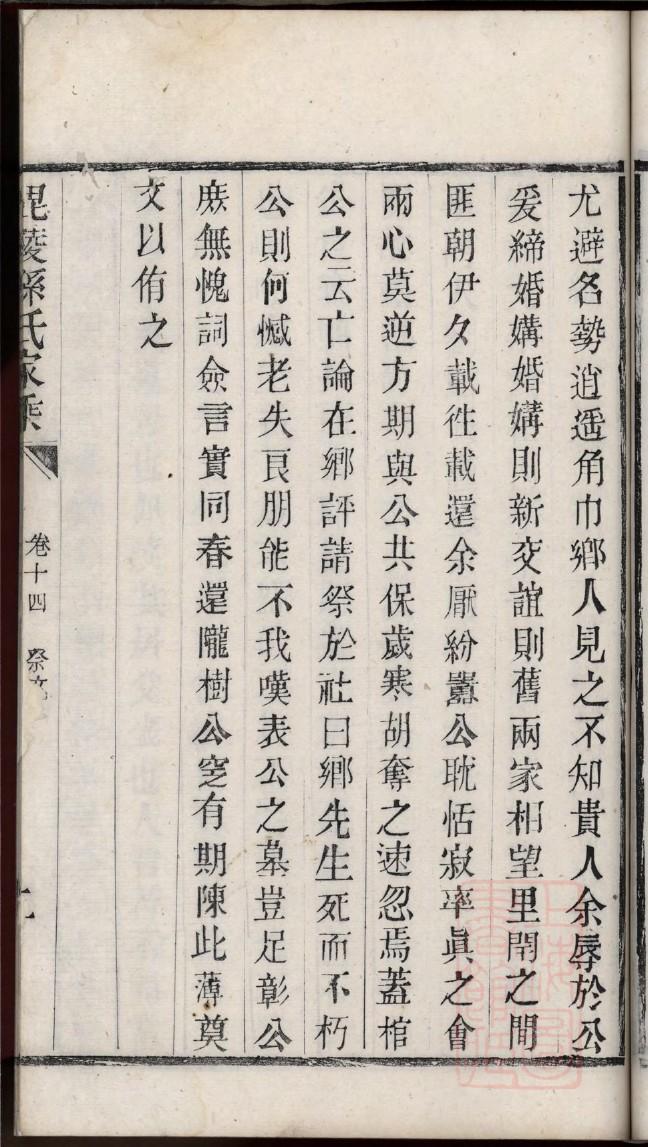 尤避名勢逍遥角巾鄉人見之不知貴人余辱於公
爰締婚媾婚媾則新交誼則舊兩家相望里閈之間
匪朝伊夕載徃載還余厭紛囂公耽恬寂率眞之會
兩心莫逆方期與公共保歲寒胡奪之速忽焉蓋棺
公之云亡論在鄉評請祭於社曰鄉先生死而不朽
公則何憾老失良朋能不我嘆表公之墓豈足彰公
庶無愧詞僉言實同春還隴樹公窆有期陳此薄奠
文以侑之
毘陵孫氏家乘
卷十四 祭文